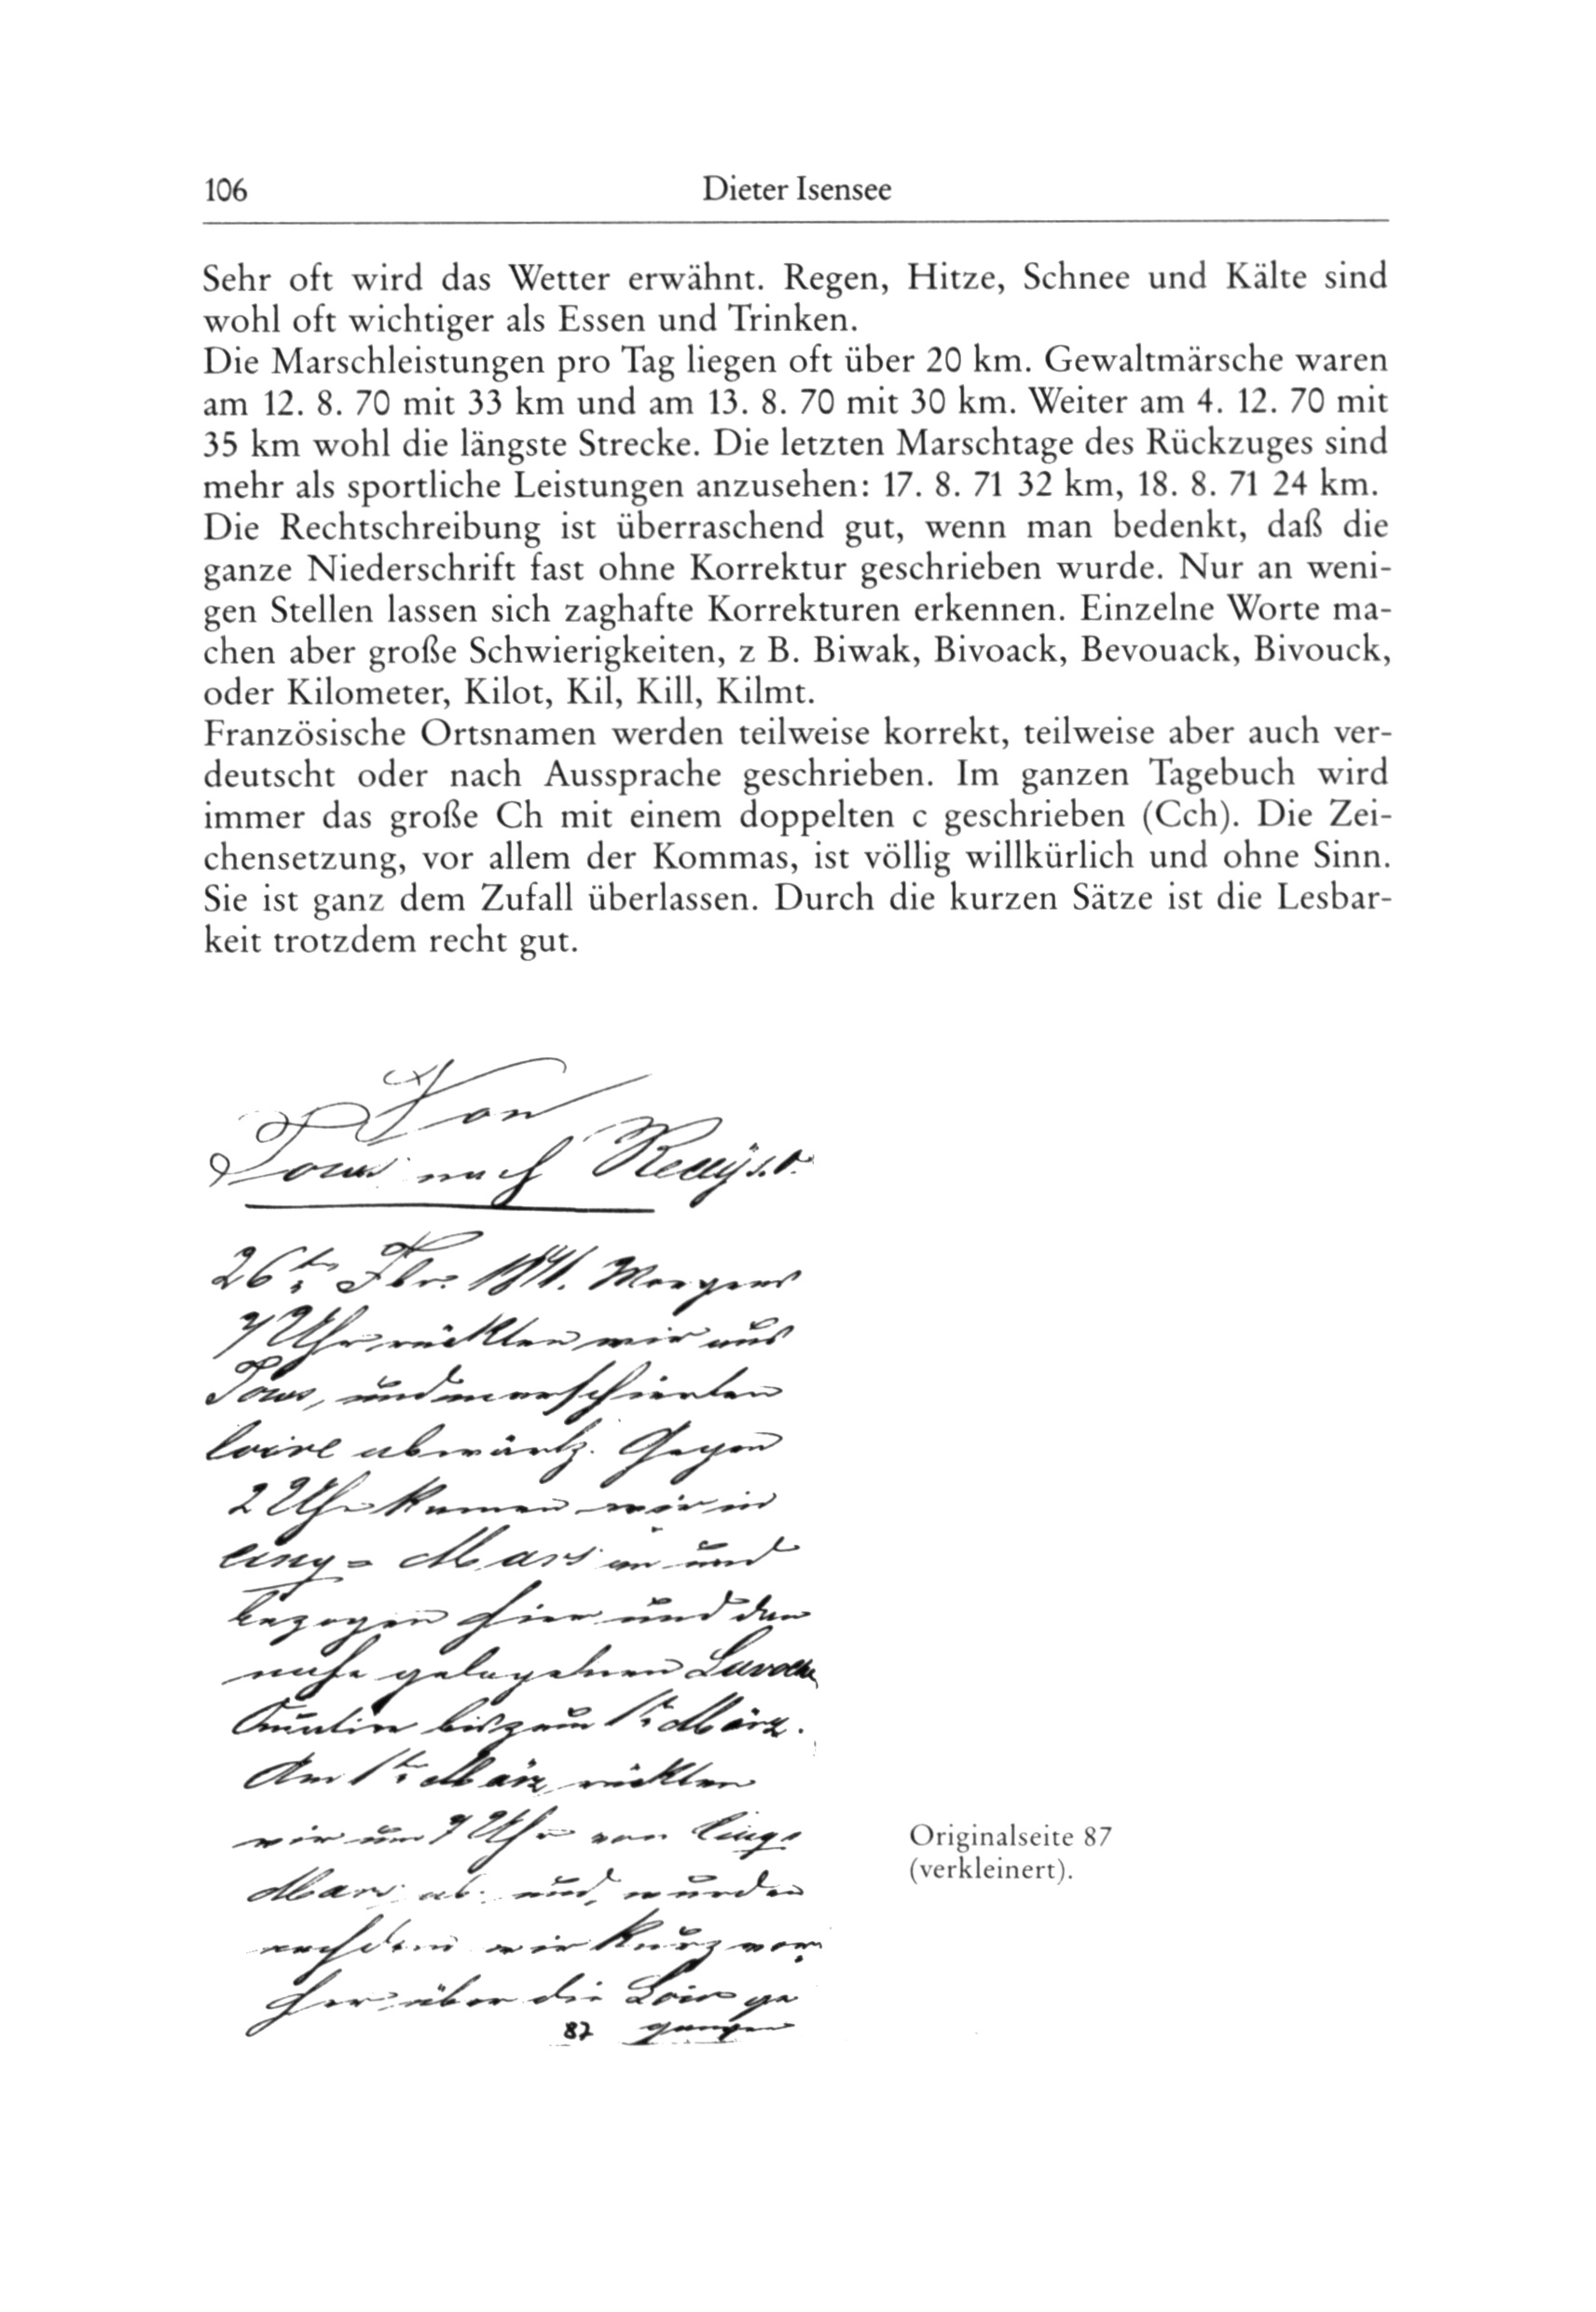 106
Dieter Isensee
Sehr oft wird das Wetter erwähnt. Regen, Hitze, Schnee und Kälte sind
wohl oft wichtiger als Essen und Trinken.
Die Marschleistungen pro Tag liegen oft über 20 km. Gewaltmärsche waren
am 12. 8. 70 mit 33 km und am 13. 8. 70 mit 30 km. Weiter am 4. 12. 70 mit
35 km wohl die längste Strecke. Die letzten Marschtage des Rückzuges sind
mehr als sportliche Leistungen anzusehen: 17. 8. 71 32 km, 18. 8. 71 24 km.
Die Rechtschreibung ist überraschend gut, wenn man bedenkt, daß die
ganze Niederschrift fast ohne Korrektur geschrieben wurde. Nur an weni-
gen Stellen lassen sich zaghafte Korrekturen erkennen. Einzelne Worte ma-
chen aber große Schwierigkeiten, z B. Biwak, Bivoack, Bevouack, Bivouck,
oder Kilometer, Kilot, Kil, Kill, Kilmt.
Französische Ortsnamen werden teilweise korrekt, teilweise aber auch ver-
deutscht oder nach Aussprache geschrieben. Im ganzen Tagebuch wird
immer das große Ch mit einem doppelten c geschrieben (Cch). Die Zei-
chensetzung, vor allem der Kommas, ist völlig willkürlich und ohne Sinn.
Sie ist ganz dem Zufall überlassen. Durch die kurzen Sätze ist die Lesbar-
keit trotzdem recht gut.
Von
nach
26ten Fbr. 1871. Morgens
7 Uhr rückten wir aus
und marschierten
Loire abwärtz. Gegen
2 Uhr kamen wir in
Mars an und
bezogen hier und den
nahe gelegehnen
Quatier bis zum 1t März.
Am 1ten März rückten
wir um 7 Uhr von
Mars ab. und, wurden
nachdem wir kurz vor
her über die Loire ge
87 gangen
Originalseite 87
(verkleinert).